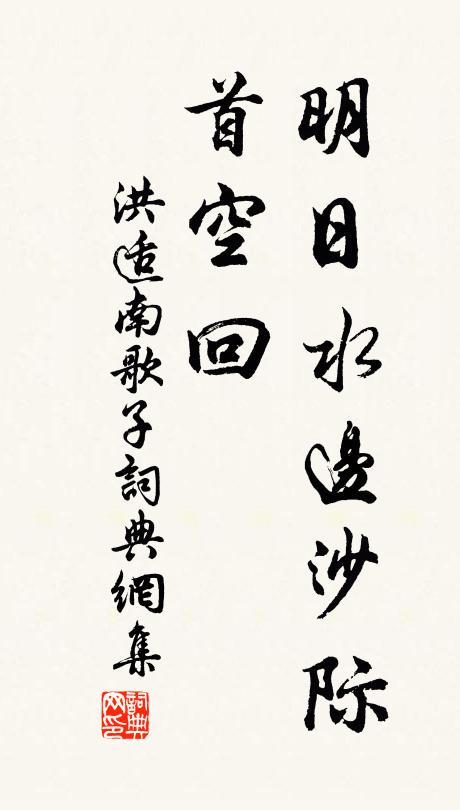 明日水邊沙際
首空回
洪适南歌子詞典網集
詞典網印